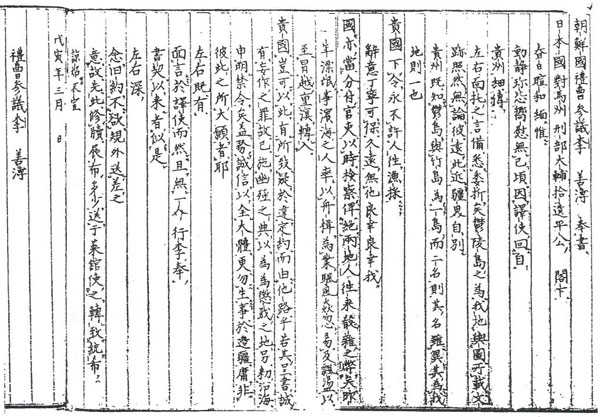 朝鮮國禮曹參議李 善溥 奉書
日本國對馬州刑部大輔拾遺平公 閤下
春日暄和緬惟
動靜珍毖嚮慰無已頃因譯使回自
貴州細傳
左右面托之言備悉委折矣鬱陵島之為我地輿圖所載文
跡照然無論彼遠此近疆界自別
貴州既知鬱島與竹島為一島而二名則其名雖異其為我
地則一也
貴國下令永不許人往漁採
辭意丁寧可保久遠無他良幸良幸我
國亦當分付官吏以時檢察俾絶兩地人往來殽雜之弊矣昨
年漂氓事濱海之人率以舟楫為業颿風焱忽易及飄盪以
至冒越重溟轉入
貴國豈可以此有所致疑於違定約而由他路乎若其呈書誠
有妄作之罪故已施幽殛之典以為懲戢之地另勅沿海
申明禁令矣益務誠信以全大體更勿生事於邊疆庸非
彼此之所大願者耶
左右既有
面言於譯使而然且無一介行李奉
書契以來者似是
左右深
念旧約不欲規外送差之
意故先此修牘展布多少送于萊館使之轉致統希
諒炤不宣
戊寅年三月 日
禮曹參議李 善溥